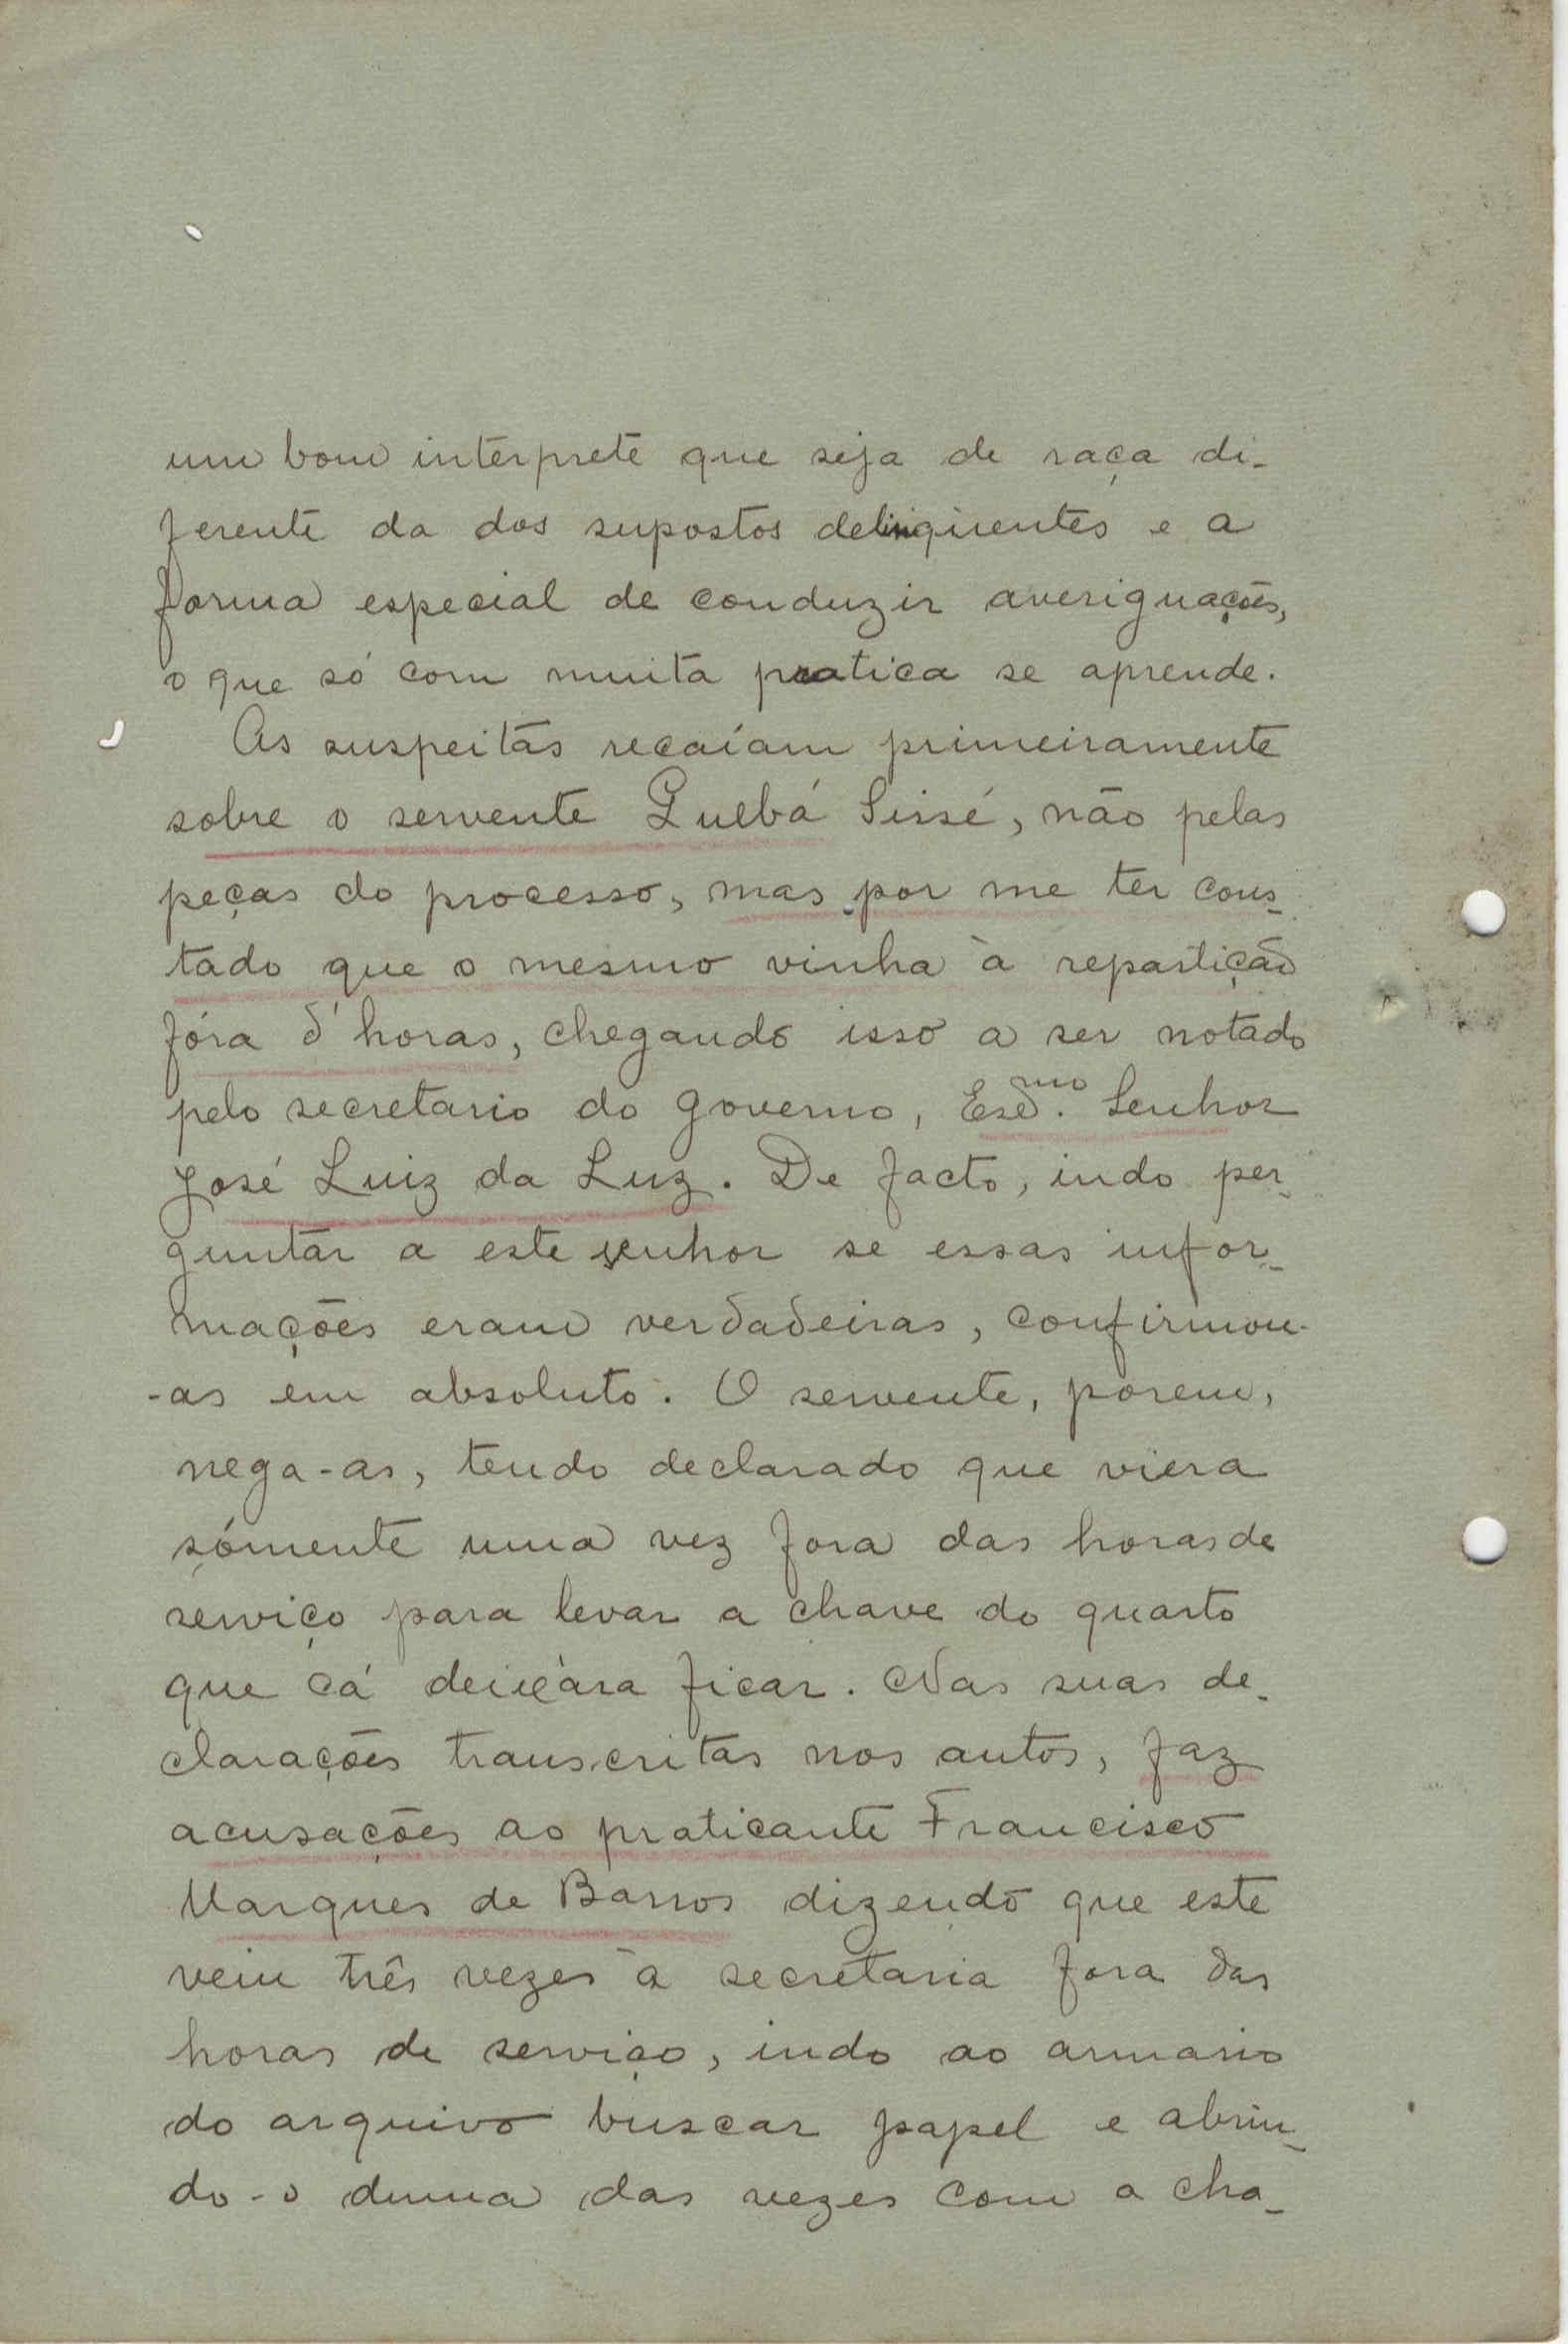 um bom interprete que seja de raça di-
ferente da dos supostos delinqùentes e a
forma especial de conduzir averiguações,
o que só com muita pratica se aprende.
As suspeitas recaíam primeiramente
sobre o servente Quebá Sissé, não pelas
peças do processo, mas por me ter cons-
tado que o mesmo vinha à repartição
fóra d'horas, chegando isso a ser notado
pelo secretario do Governo, Exmo. Senhor
José Luiz da Luz. De facto, indo per-
guntar a este senhor se essas infor-
mações eram verdadeiras, confirmou-
-as em absoluto. O servente, porem,
nega-as, tendo declarado que viera
sómente uma vez fora das horas de
serviço para levar a chave do quarto
que cá deixára ficar. Nas suas de-
clarações transcritas nos autos, faz
acusações ao praticante Francisco
Marques de Barros dizendo que este
veiu três vezes à secretaria fora das
horas de serviço, indo ao armario
do arquivo buscar papel e abrin-
do-o duma das vezes com a cha-